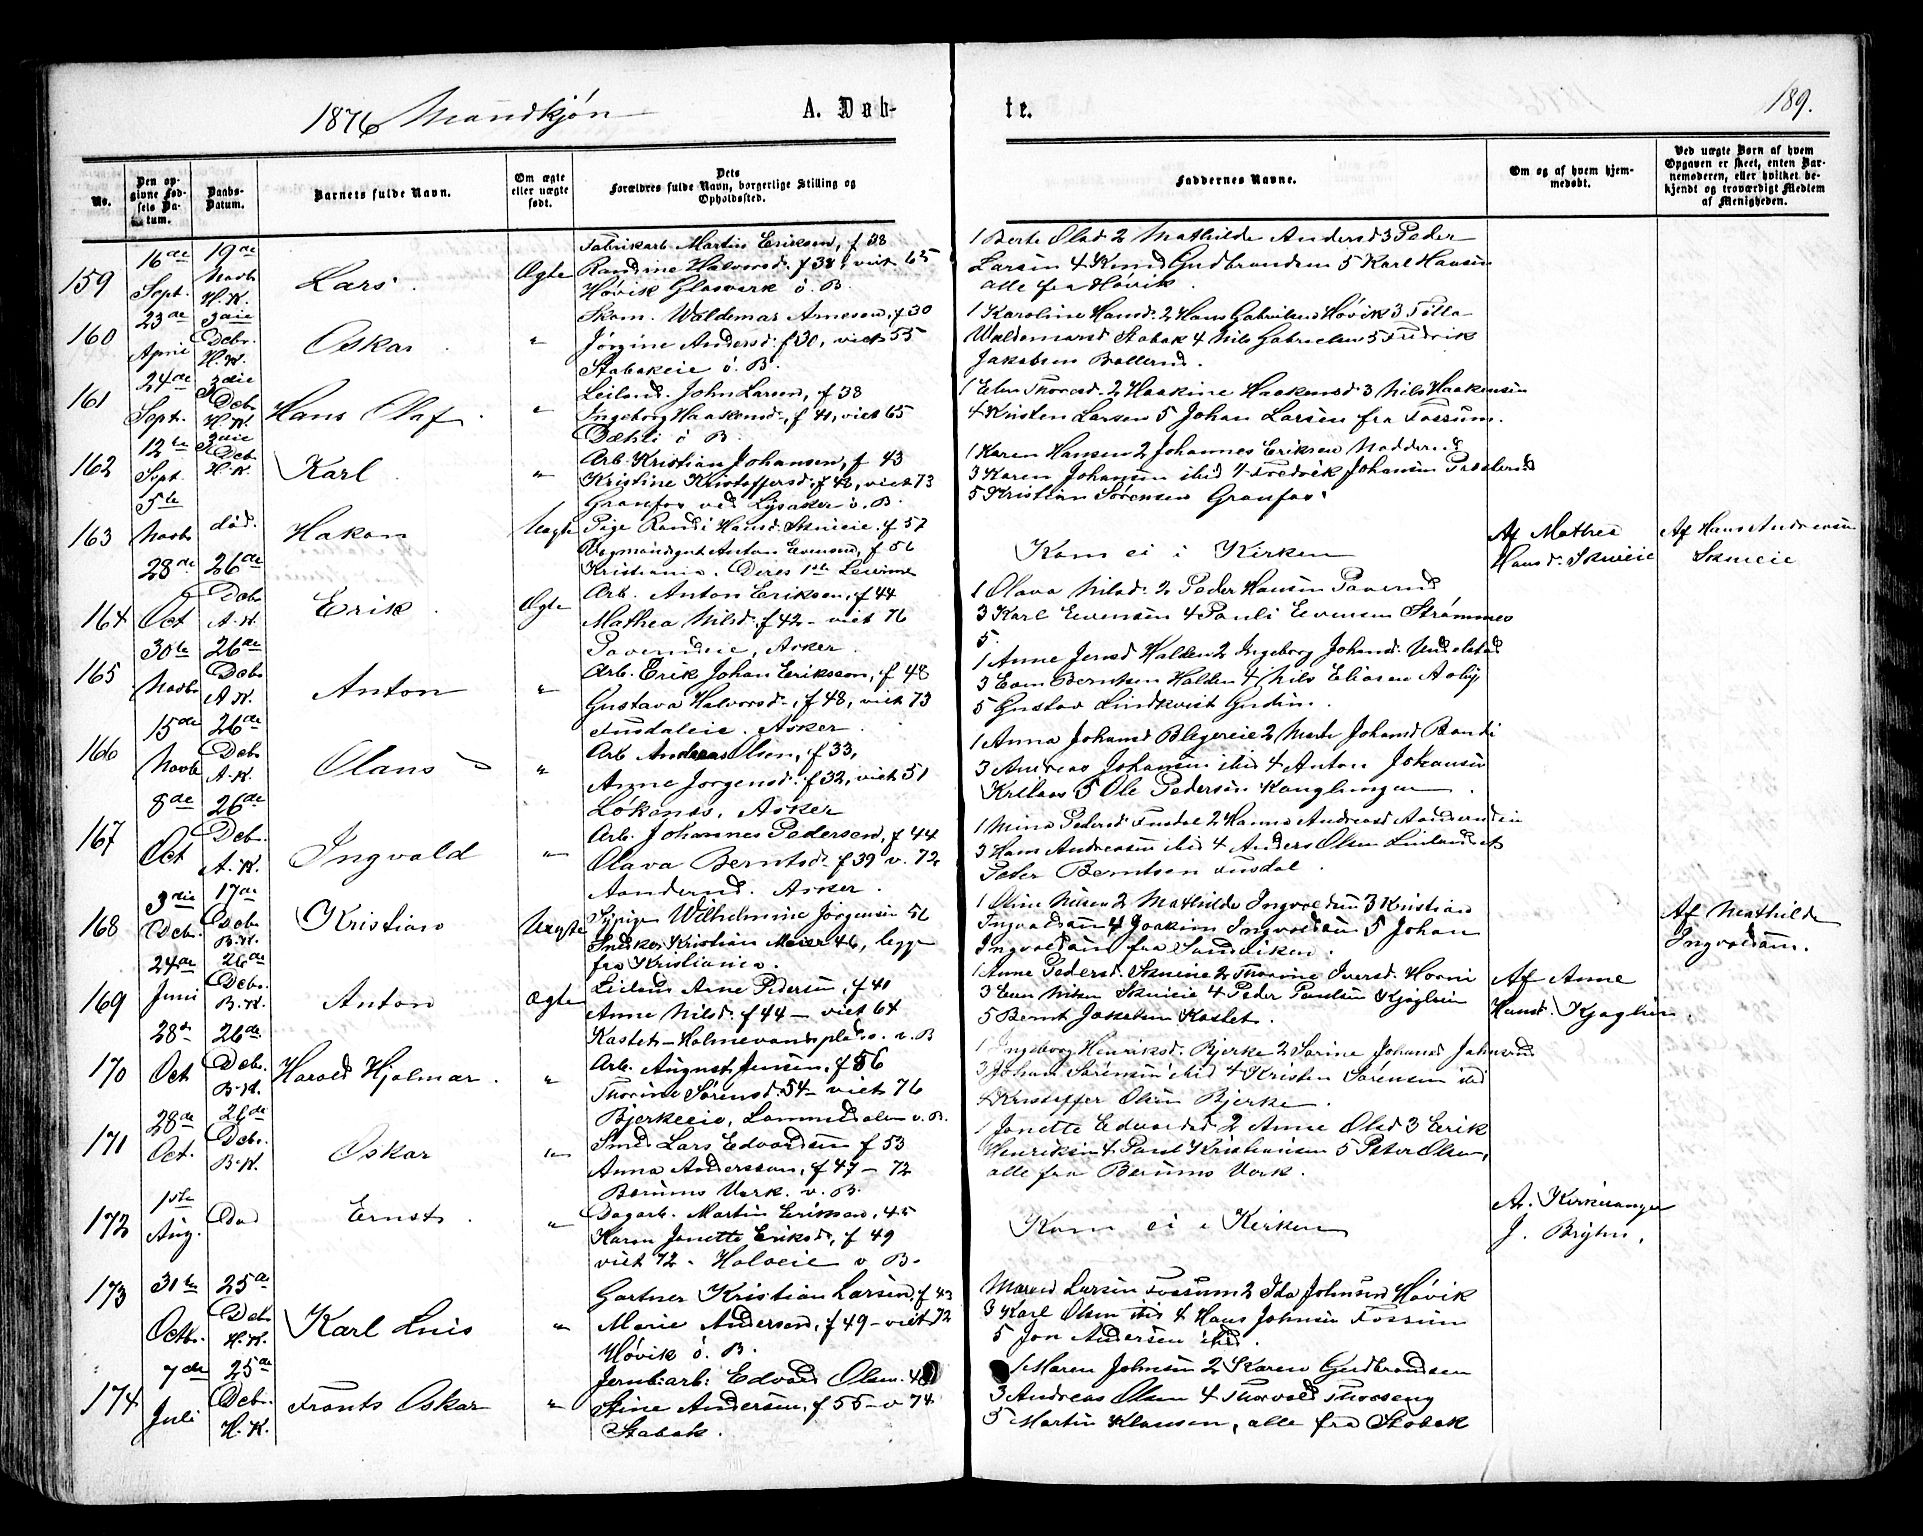 1876 Mandkjøn
A. Døb-
te.
189.
No.
Den op-
givne Fød-
sels Da-
tum.
Daabs-
Datum.
Barnets fulde Navn.
Om ægte
eller uægte
født.
Dets
Forældres fulde Navn, borgerlige Stilling og
Opholdssted.
Faddernes Navne.
Om og af hvem hjem-
medøbt.
Ved uægte Børn af hvem
Opgaven er skeet, enten Bar-
nemoderen, eller hvilket be-
kjendt og troværdigt Medlem
af Menigheden.
159
16de
Sept.
19de
Novb
H.K.
Lars
Ægte
Fabrikarb. Martin Eriksen, f 38
Randine Halvorsd. f 38, viet 65
Høvik Glasværk ö. B.
1 Berte Olsd. 2 Mathilde Andersd 3 Peder
Larsen 4 Knud Gudbrandsen 5 Karl Hansen
alle fra Høvik
160
23de
April
3die
Debr.
H.K.
Oskar
"
Skom. Waldemar Arnesen, f 30
Jørgine Andersd. f 30, viet 55
Stabækeie ö. B.
1 Karoline Hansd. 2 Hans Gabrielsen Høvik 3
Waldemarsd Stabæk 4 Nils Gabrielsen 5 Fredrik
Jakobsen
161
24de
Sept.
3die
Debr
H.K.
Hans Olaf
"
Leilænd. John Larsen, f 38
Ingeborg Haakensd., f 41, viet 65
Dæhli ö B.
1 Elen Thoresd. 2 Haakine Haakensd. 3 Nils Haakensen
4 Kristen Larsen 5 Johan Larsen fra Fossum.
162
12te
Sept.
3die
Deb
H.K.
Karl
"
Arb. Kristian Johansen, f 43
Kristine Kristoffersd. f 46, viet 73
Granfos ved Lysaker ö. B.
1 Karen Hansen 2 Johannes Eriksen Nadderud
3 Karen Johansen ibid 4 Fredrik Johansen
5 Kristian Sørensen Granfos.
163
5te
Novb
død.
Hakon
Uægte
Pige Randi Hansd. Skuieie. f 57
Anton Evensen, f 56
Kristiania. Deres 1ste Leierm
Kom ei i Kirken
Af Mathea
Hansd. Skuieie
Af Hans Andreasen
Skuieie
164
28de
Oct
26de
Debr
A.K.
Erik
Ægte
Arb. Anton Eriksen, f 44
Mathea Nilsd. f 42 - viet 76
Asker
1 Olava Nilsd. 2 Peder Hansen
3 Karl Evensen 4 Pauli Evensen Strømmen
5.
165
30te
Novbr
26de
Debr
A.K.
Anton
"
Arb. Erik Johan Eriksson, f 48
Gustava Halvorsd., f 48, viet 73
Fusdaleie. Asker
1 Anne Jensd Halden 2 Ingeborg Johansd.
3 Even Berntsen Halden 4 Nils Eliasen Aaby
5 Gustav Lindkvist
166
15de
Novb
26de
Debr
A.K.
Olaus
"
Arb Andreas Olsen, f 33,
Anne Jørgensd. f 32, viet 51
Løkenes, Asker
1 Anna Johansd 2 Marte Johansd
3 Andreas Johansen ibid 4 Anton Johansen
5 Ole Pedersen Konglungen
167
8de
Oct
26de
Deb.
A.K.
Ingvald
"
Arb. Johannes Pedersen, f 44
Olava Berntsd. f 39 v. 72
Asker.
1 Mina Pedersd Fusdal 2 Hanna Andreasd
3 Hans Andreasen ibid 4 Anders Olsen
Peder Berntsen Fusdal.
168
3die
Debr.
17de
Debr
B.K.
Kristian
Uægte
Sypige Wilhelmine Jørgensen 56
Kristian Meier 46, begge
fra Kristiania.
1 Oline Nilsen 2 Mathilde Ingvoldsen 3 Kristian
Ingvoldsen 4 Joakim Ingvoldsen 5 Johan
Ingvoldsen fra Sandviken.
Af Mathilde
Ingvoldsen.
169
24de
Juni
26de
Debr.
B.K.
Anton
Ægte
Leilænd Arne Pedersen, f 41
Anne Nilsd. f 44 - viet 64
Kastet - Holmevandsplads. v. B
1 Anne Pedersd. Skuieie 2 Thorine Iversd. Horni
3 Even Nilsen Skuieie 4 Peder Paulsen Kjaglien
5 Bernt Jakobsen Kastet.
Af Anne
Hansd. Kjaglien.
170
28de
Oct
26de
Debr.
B.K.
Harald Hjalmar.
"
Arb. August Jensen, f 56
Thorine Sørensd. 54 - viet 76
Bjerkeeie, Lommedalen v. B.
1 Ingeborg Henriksd. Bjerke 2 Sørine Johansd
3 Johan Sørensen ibid 4 Kristen Sørensen ibid
Kristoffer Olsen Bjerke.
171
28de
Oct.
26de
Debr.
B.K.
Oskar
"
Smed Lars Edvardsen f 53
Anna Anderssen, f 47 - 72
Bærums Værk. v. B.
1 Janette Edvardsd 2 Anne Olsd 3 Erik
Henriksen 4 Paul Kristiansen 5 Peter Olsen,
alle fra Bærums Værk.
172
1ste
Aug.
Død
Ernst
"
Dagarb. Martin Eriksen, 45
Karen Janette Eriksd., f 49
viet 72 - v B.
Kom ei i Kirken
Av. Kirkesanger
J. Bryhn.
173
31te
Octbr.
25de
Debr
H.K.
Karl Luis
"
Gartner Kristian Larsen, f 43
Marie Andersen, f 49 - viet 72
Høvik ö. B.
Maren Larsen Fossum 2 Ida Johnsen Høvik
3 Karl Olsen ibid 4 Hans Johnsen Fossum
5 Jon Andersen ibid.
174
7de
Juli
25de
Debr.
H.K.
Frants Oskar
"
Jernb.arb: Edvard Olsen. 48
Stine Andersen, f 55 - v 74
Stabæk.
1 Maren Johnsen 2 Karen Gudbrandsen
3 Andreas Olsen 4 Thorvald
5 Martin Klausen, alle fra Stabæk